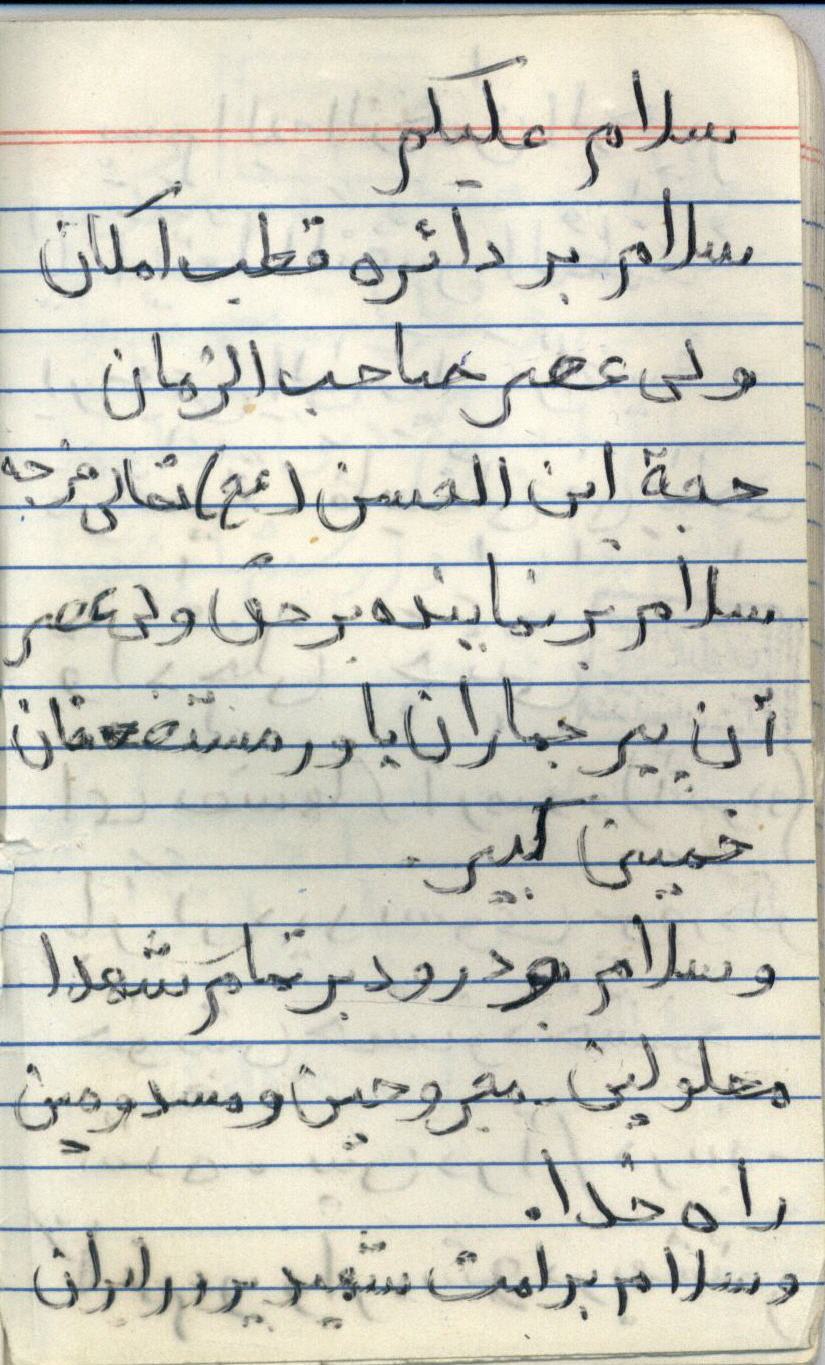 سلام علیکم
سلام بر دائره قطب امکان
ولی عصر صاحب الزمان
حجة ابن الحسن (عج) تعالی فرجه
سلام بر نماینده بر حق ولی عصر
آن پیر جماران یاور مستضعفان
خمینی کبیر.
وسلام و درود بر تمام شهدا
معلولین - مجروحین و مسدومین
راه خدا.
وسلام بر امت شهید پرور ایران